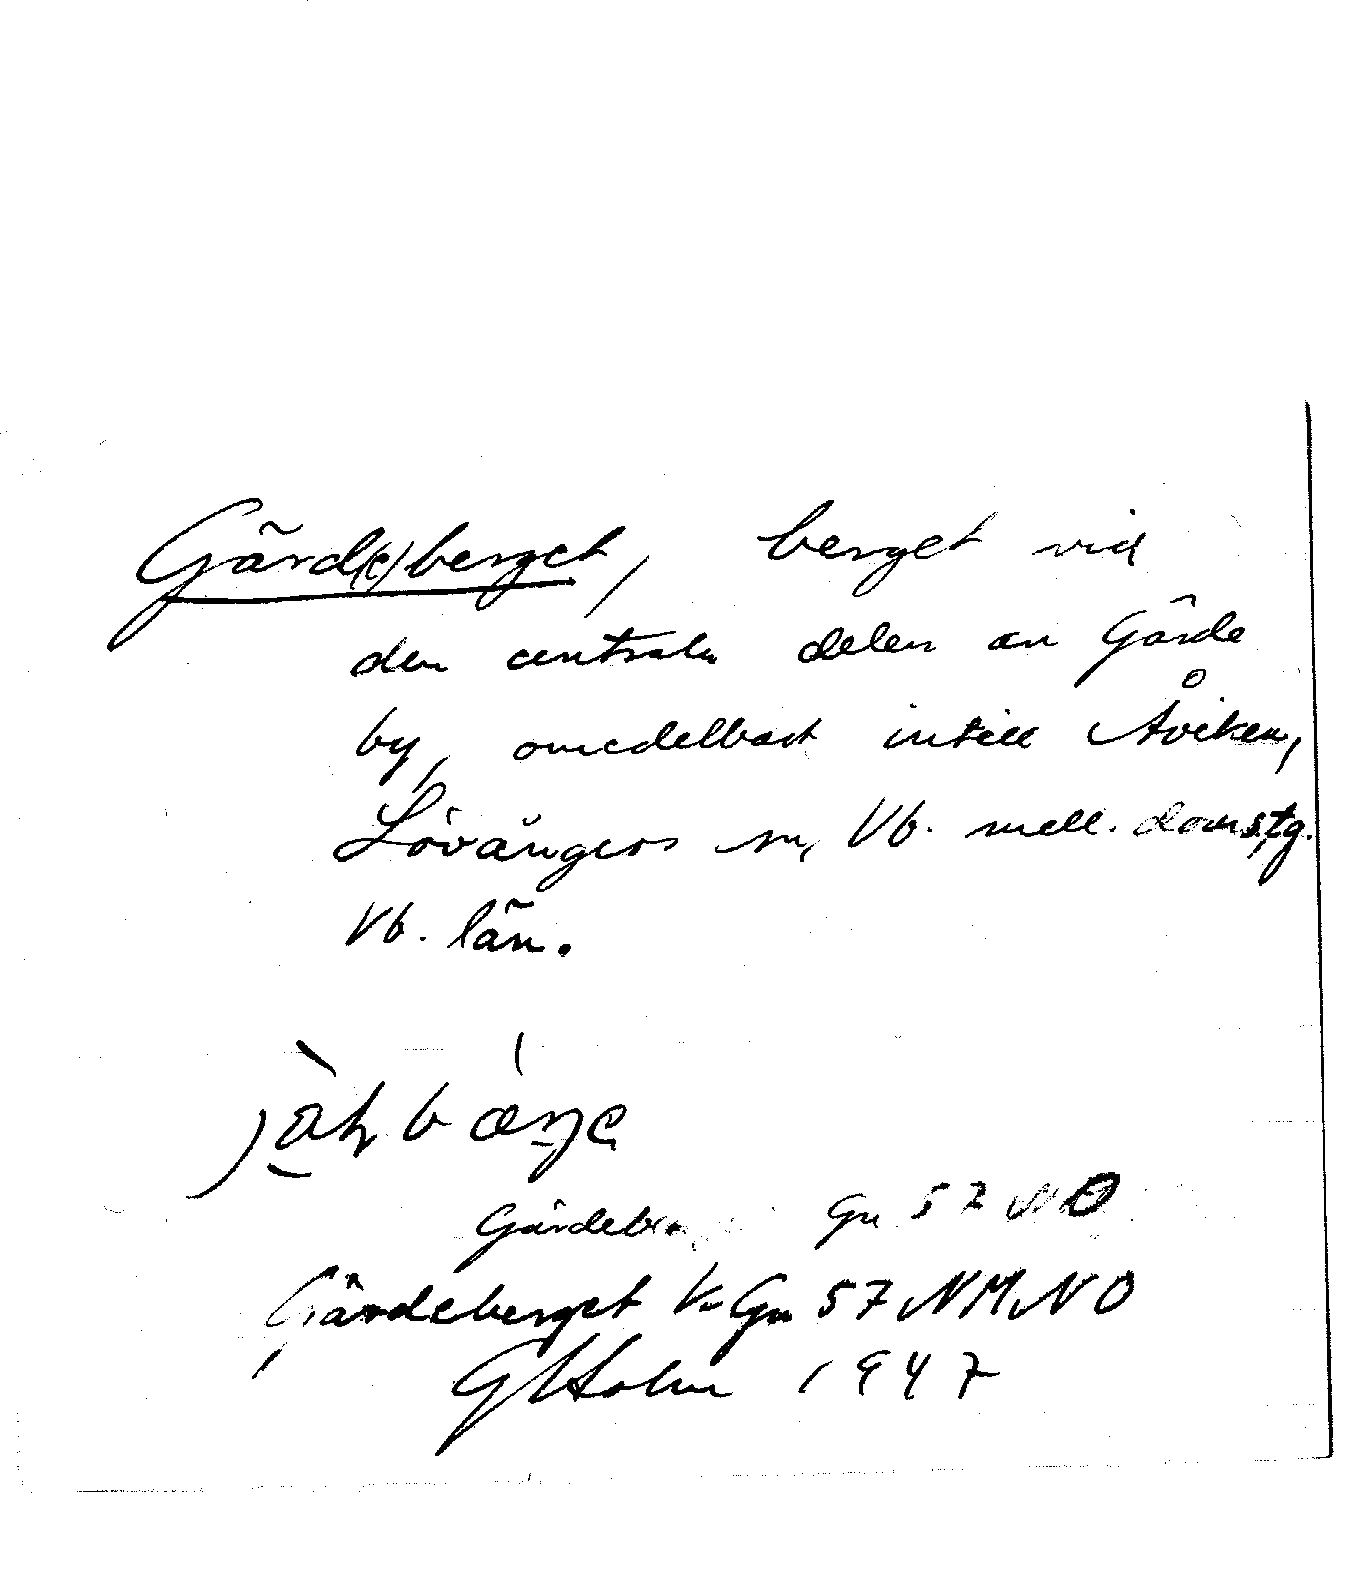 Gärd(e)berget, berget vid
den centrala delen av Gärde
by, omedelbart intill Åviken,
Lövångers sn, Vb. mell. domstg.
Vb. län.
Gärdebe Gn 57 NO
Gärdeberget V. Gn 57 NM, NO
GHolm 1947